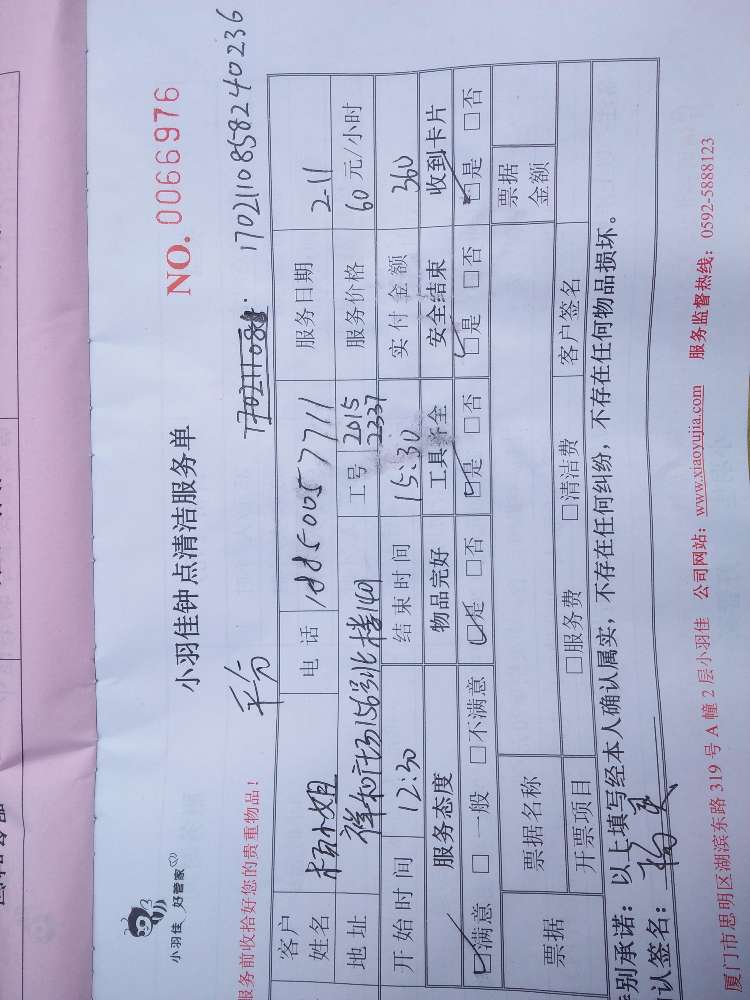 小羽佳 好管家
小羽佳钟点清洁服务单
NO. 0066976
服务前收拾好您的贵重物品!
平分
1702110858240236
客户姓名
杨小姐
电话
18850057711
服务日期
2-11
地址
祥和市场156号北楼1401
工号
2015
2337
服务价格
60元/小时
开始时间
12:30
结束时间
15:30
实付金额
360
服务态度
物品完好
工具齐全
安全结束
收到卡片
☑满意 □一般 □不满意
☑是 □否
☑是 □否
☑是 □否
☑是 □否
票据
票据名称
票据金额
开票项目
□服务费
□清洁费
客户签名
别承诺:以上填写经本人确认属实,不存在任何纠纷,不存在任何物品损坏。
认签名:
厦门市思明区湖滨东路 319 号 A 幢 2 层小羽佳 公司网站:www.xiaoyujia.com 服务监督热线:0592-5888123